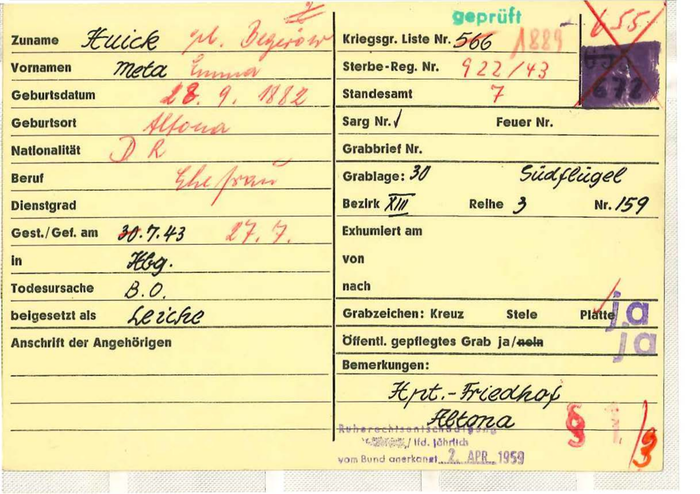 geprüft
Zuname Huick geb. Begerow
Vornamen Meta Emma
Geburtsdatum 28. 9. 1882
Geburtsort Altona
Nationalität D R
Beruf Ehefrau
Dienstgrad
Gest./Gef. am 30.7.43 27.7.
in Hbg.
Todesursache B.O.
beigesetzt als Leiche
Anschrift der Angehörigen
Kriegsgr. Liste Nr. 566 1889 655
Sterbe-Reg. Nr. 922/43 672
Standesamt 7
Sarg Nr. Feuer Nr.
Grabbrief Nr.
Grablage: 30 Südflügel
Bezirk XIII Reihe 3 Nr. 159
Exhumiert am
von
nach
Grabzeichen: Kreuz Stele Platte ja
Öffentl. gepflegtes Grab ja/nein ja
Bemerkungen:
Hpt.-Friedhof
Altona
§ 1 /3
Ruherechtsentschädigung
/ lfd. jährlich
vom Bund anerkannt 2. APR. 1959